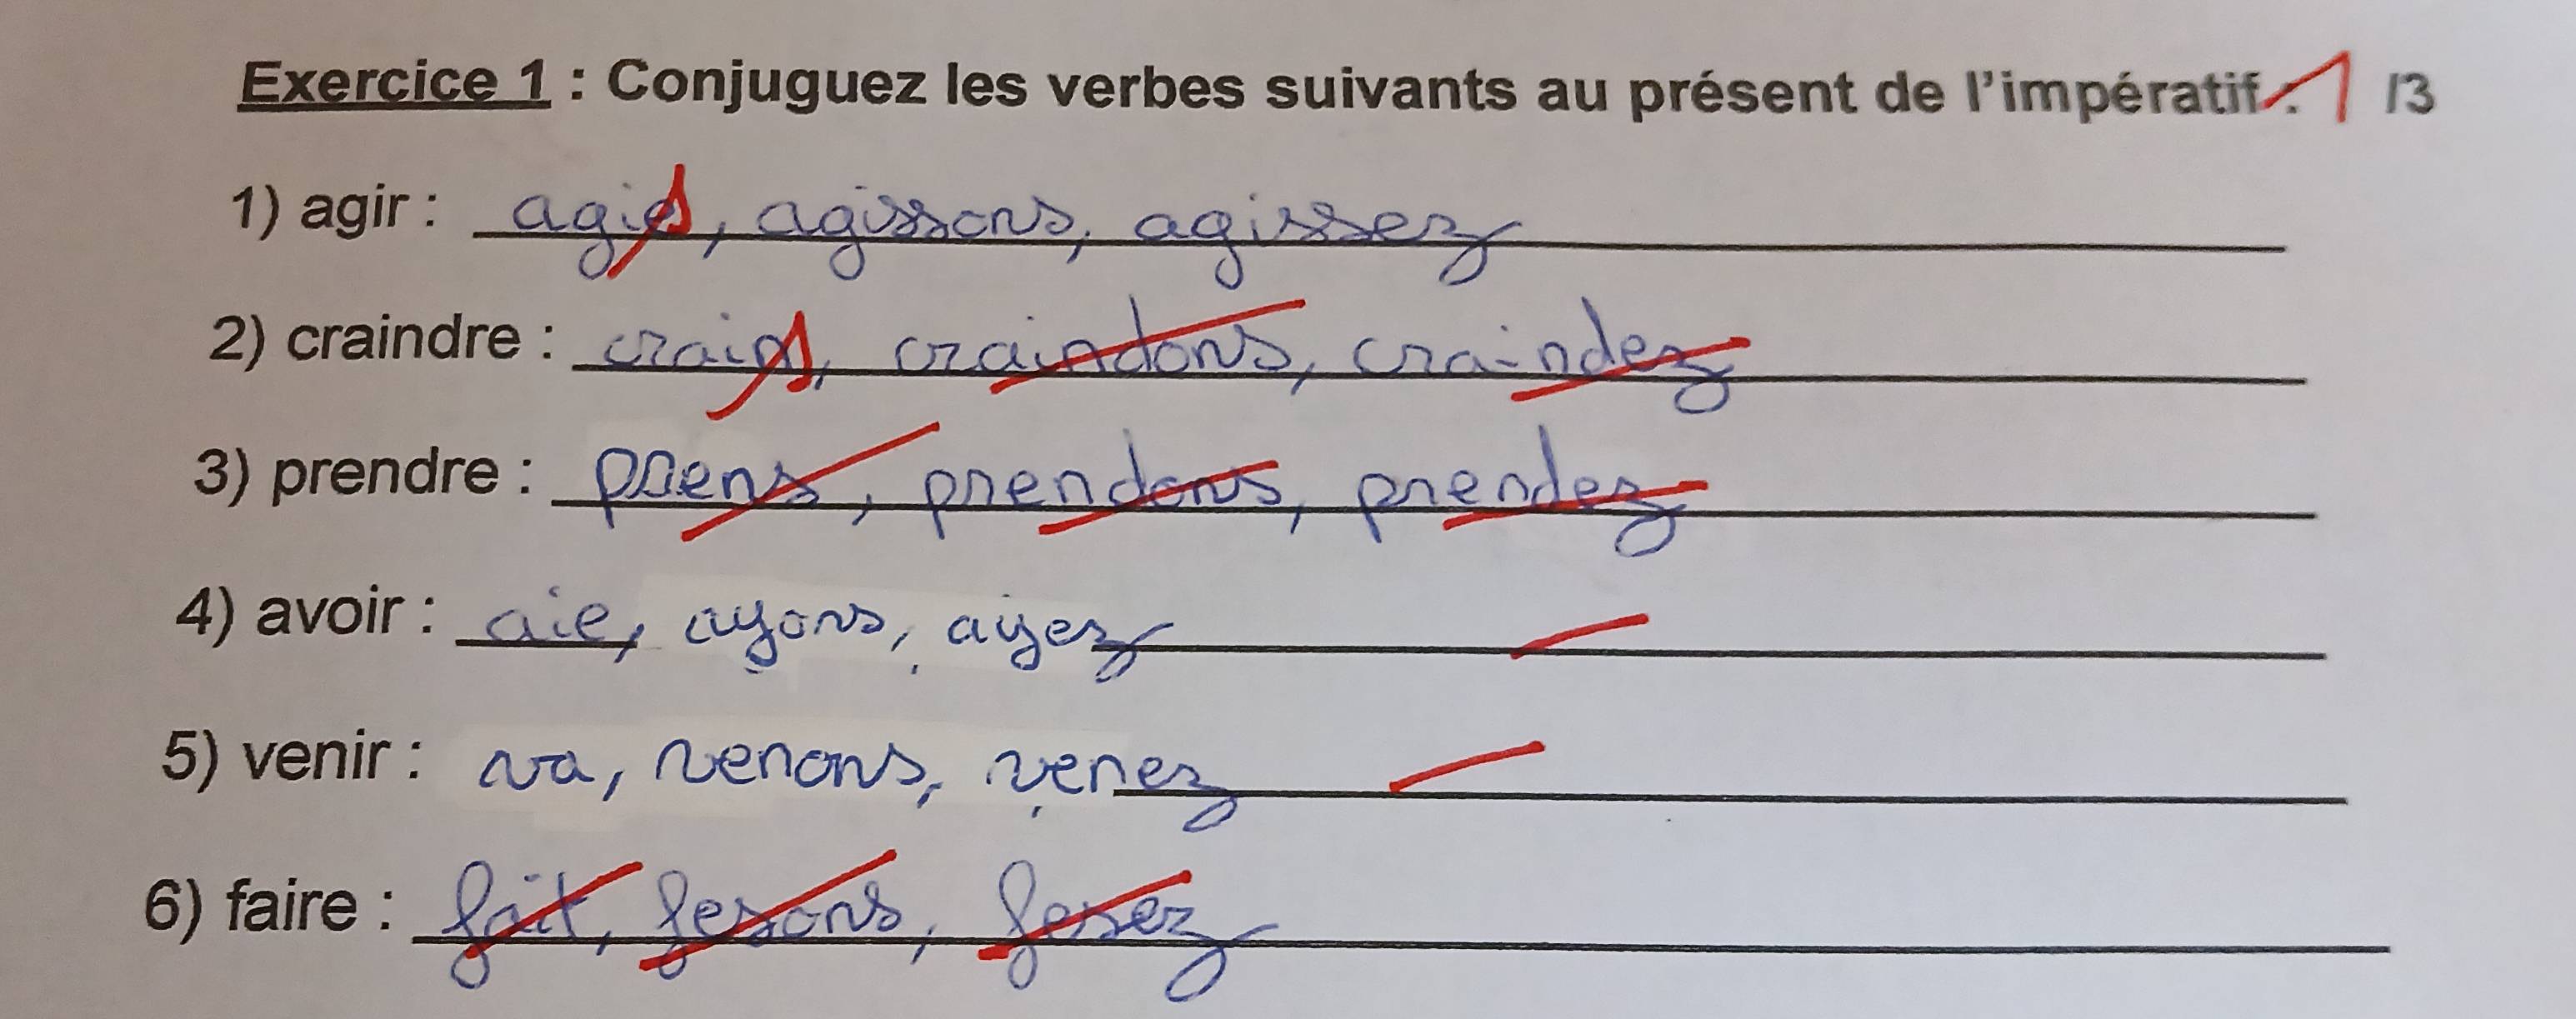 Exercice 1 : Conjuguez les verbes suivants au présent de l'impératif : 1 /3
1) agir : agis, agissons, agissez
2) craindre : crains, craindons, craindez
3) prendre : prens, prendons, prendez
4) avoir : aie, ayons, ayez
5) venir : va, venons, venez
6) faire : fait, fesons, fesez